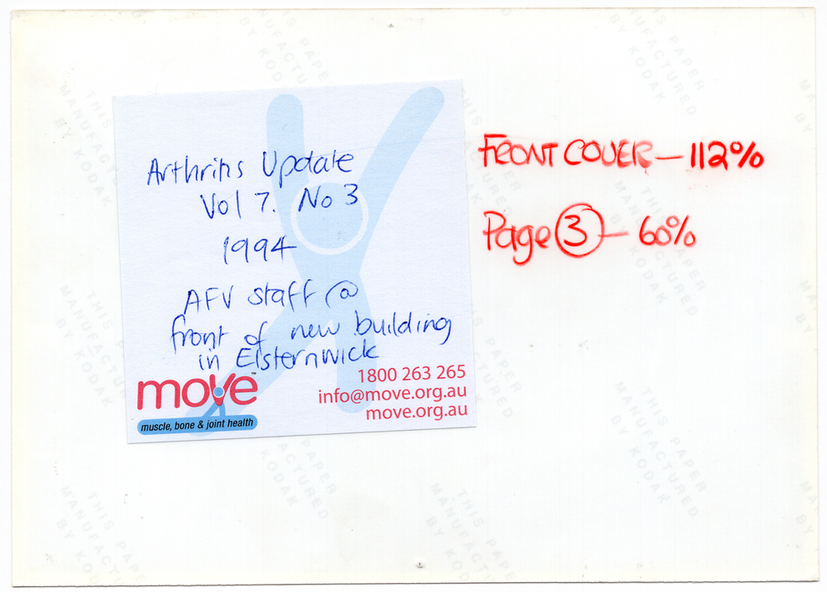 Arthritis Update
Vol 7. No 3
1994
AFV staff @
front of new building
in Elsternwick
move™
muscle, bone & joint health
1800 263 265
info@move.org.au
move.org.au
FRONT COVER — 112%
Page 3 — 60%
THIS PAPER
MANUFACTURED
BY KODAK